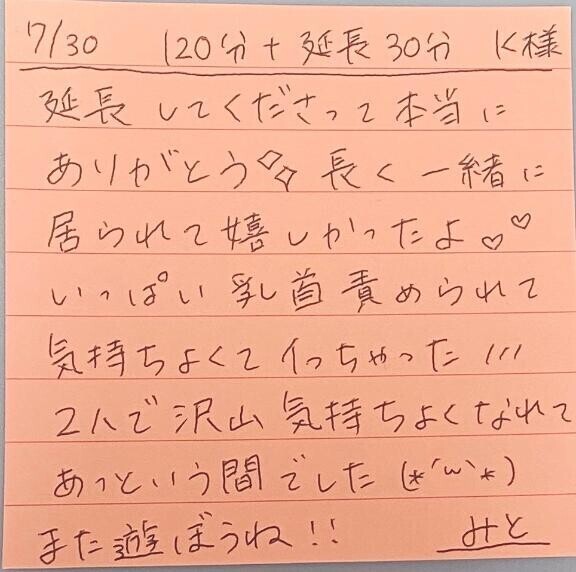 7/30 120分+延長30分 K様
延長してくださって本当に
ありがとう✧✧ 長く一緒に
居られて嬉しかったよ♡♡
いっぱい乳首責められて
気持ちよくてイっちゃった ///
2人で沢山気持ちよくなれて
あっという間でした (*´ω`*)
また遊ぼうね!! みと